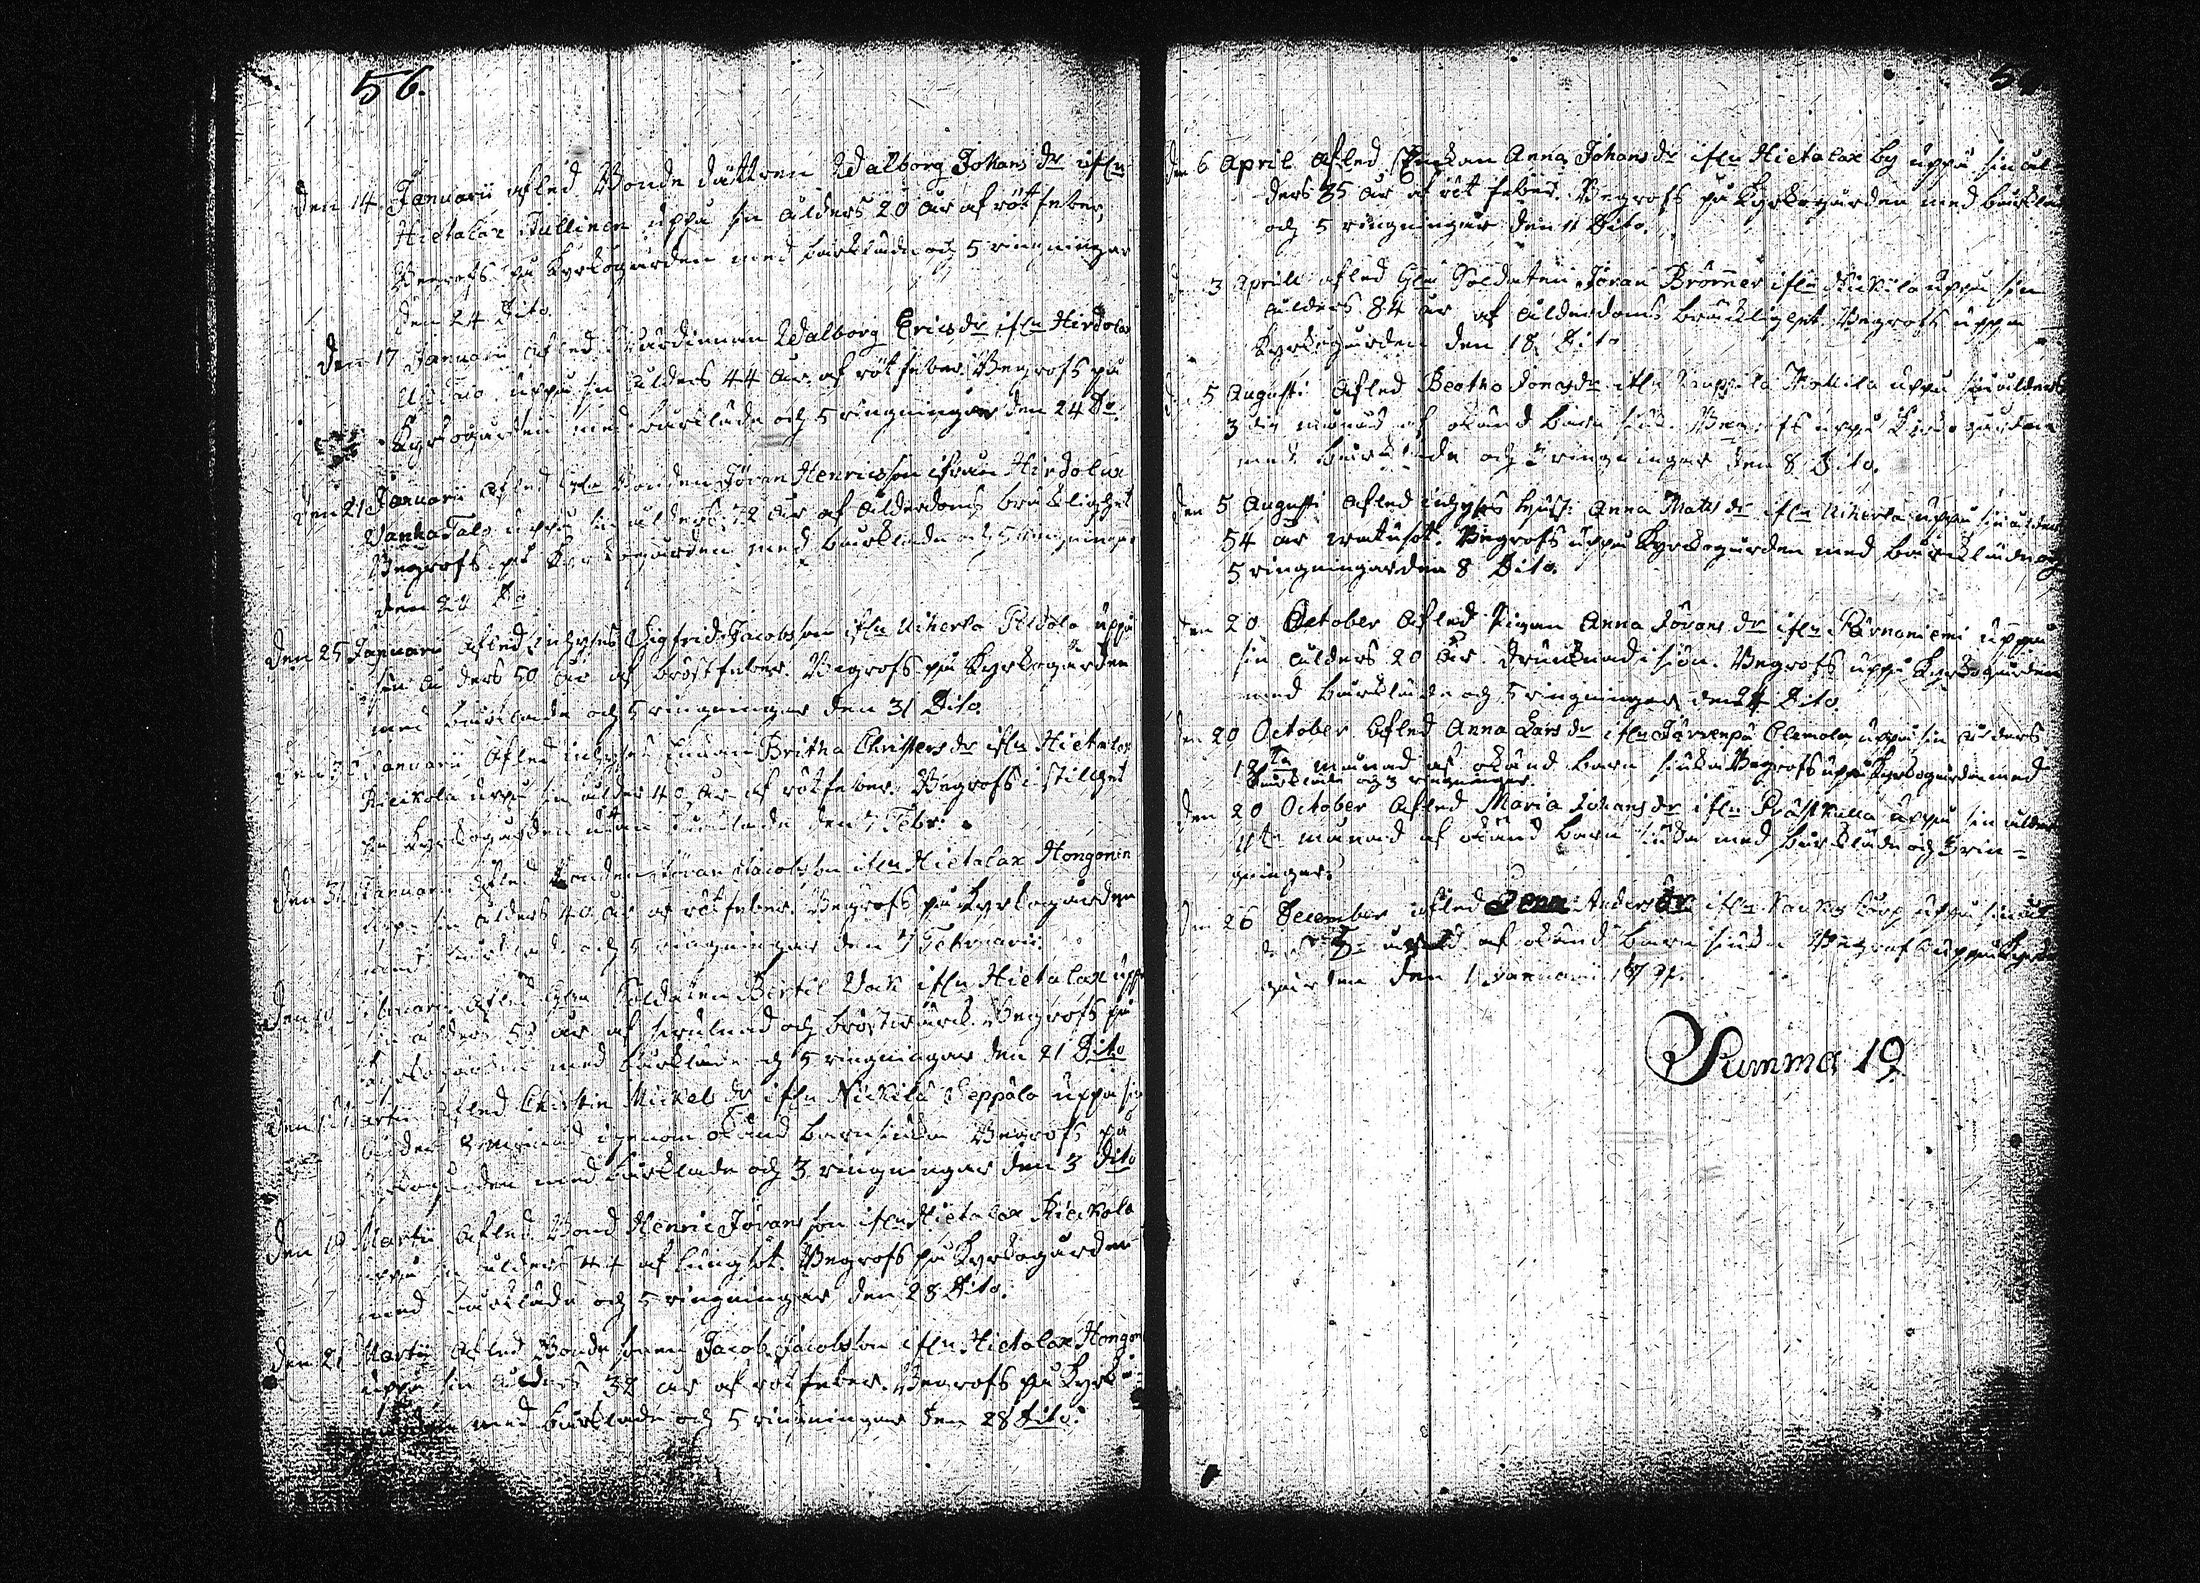 56.
Den 14 Januarii afled Bonde dåttren Walborg Johans dr ifrn
Hietalax Pullinen uppå sin ålders 20 år af rötfeber,
Begrofs på Kyrkogården med bårkläde och 5 ringningar
den 24 Dito.
Den 17 Januarii afled Wärdinnan Walborg Erics dr ifrn Hirdolax
uppå sin ålders 44 år af rötfeber. Begrofs på
Kyrkogården med bårkläde och 5 ringningar den 24 Do
Den 21 Januarii afled Bonden Jöran Henricsson ifrån Hirdolax
Vanhatalo uppå sin ålders 72 år af ålderdoms bräklighet
Begrofs på Kyrkogården med bårkläde och 5 ringningar
den 28 Do
Den 25 Januarii afled Inhyses Sigfrid Jacobsson ifrn Uiherla uppå
sin ålders 50 år af bröstfeber. Begrofs på Kyrkogården
med bårkläde och 5 ringningar den 31 Dito.
Januarii afled inhyses Enkan Britha Christers dr ifrn Hietalax
Kiickola uppå sin ålders 40 år af rötfeber. Begrofs i stillhet
på Kyrkogården utan bårkläde den 7 Febr:
Den 31 Januarii afled Bonden Jöran Jacobsson ifrn Hietalax Hongonen
uppå sin ålders 40 år af rötfeber. Begrofs på Kyrkogården
med bårkläde och 5 ringningar den 7 Februarii.
Den Februarii afled Soldaten Bertil Vak ifrn Hietalax uppå
sin ålders 53 år af och bröstwärck. Begrofs på
Kyrkogården med bårkläde och 5 ringningar den 21 Dito
Den Martii afled Christin Mickels dr ifrn Nickilä Seppälä uppå sin
ålders 8 månad igenom okänd barnsiuka Begrofs på
Kyrkogården med bårkläde och 3 ringningar den 3 Dito
Den 19 Martii afled Bond Henric Jöransson ifrn Hietalax Kiickola
uppå sin ålders 44 af lungsot. Begrofs på Kyrkogården
med bårkläde och 5 ringningar den 28 Dito.
Den 21 Martii afled Bonde sonen Jacob Jacobsson ifrn Hietalax Hongon
uppå sin ålders 32 år af rötfeber. Begrofs på Kyrko
gården med bårkläde och 5 ringningar den 28 Dito.
Den 6 April afled Enkan Anna Johans dr ifrn Hietalax by uppå sin ål
ders 35 år af rötfeber. Begrofs på Kyrkogården med bårkläde
och 5 ringningar den 11 Dito.
3 Aprill afled Soldaten Jöran Brömer ifrn Nickilä uppå sin
ålders 84 år af ålderdoms bräklighet. Begrofs uppå
Kyrkogården den 18 Dito
5 Augusti afled Beatha Jonas dr ifrn uppå sin ålders
3 die månad af okänd barn siuk. Begrofs uppå Kyrkogården
med bårkläde och 3 ringningar den 8 Dito.
Den 5 Augusti afled inhyses hust: Anna Mats dr ifrn Uiherla uppå sin ålders
54 år watusot. Begrofs uppå Kyrkogården med bårkläde och
5 ringningar den 8 Dito.
Den 20 October afled Pigan Anna Jörans dr ifrn Pärnaniemi uppå
sin ålders 20 år drunknad i siön. Begrofs uppå Kyrkogården
med bårkläde och 5 ringningar den 24 Dito.
Den 20 October afled Anna Lars dr ifrn Järvenpä Clemola uppå sin ålders
månad af okänd barn siuka Begrofs uppå Kyrkogården med
bårkläde och 3 ringningar.
Den 20 October afled Maria Johans dr ifrn Prästkulla uppå sin ålders
månad af okänd barn siuka med bårkläde och 3 rin=
gningar.
Den 26 December afled Anders dr ifrn uppå sin ål
ders af okänd barn siuka Begrafs uppå Kyrko
gården den 1 Januarii
Summa 19